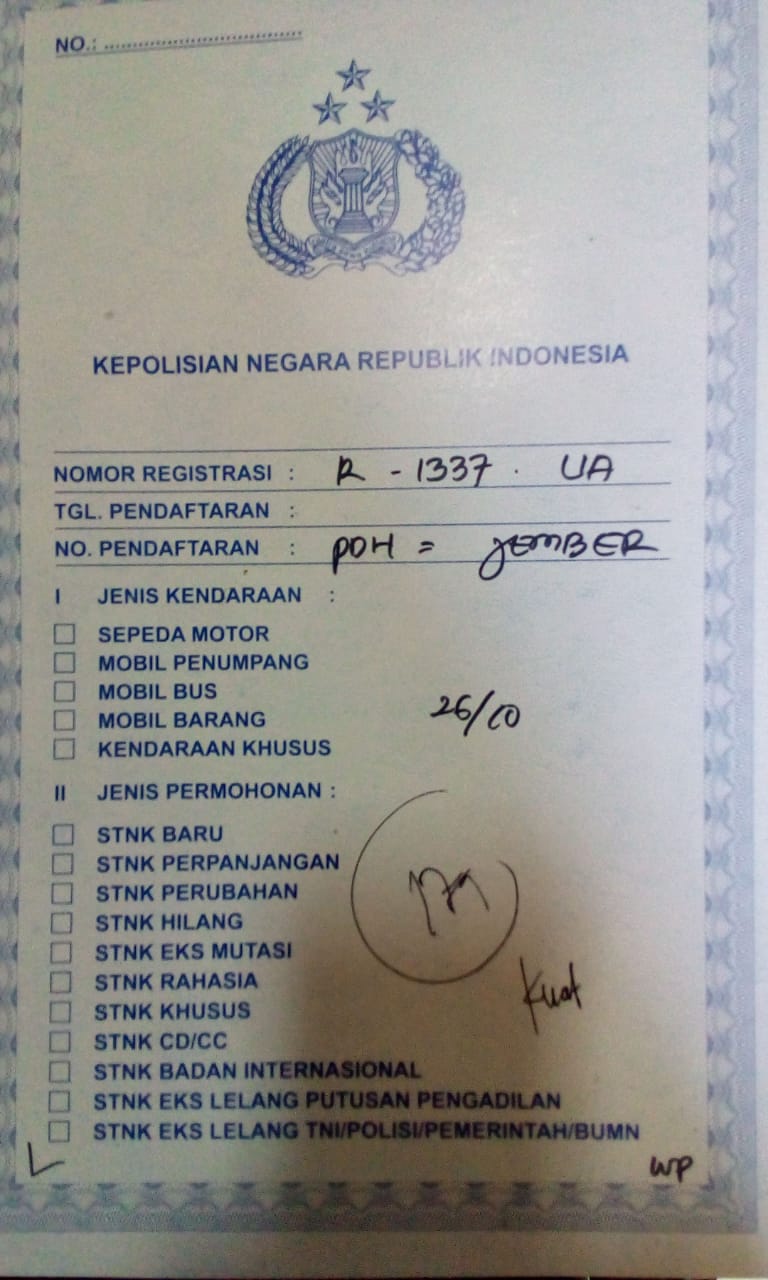 NO.: ........................................
KEPOLISIAN NEGARA REPUBLIK INDONESIA
NOMOR REGISTRASI : R - 1337 . UA
TGL. PENDAFTARAN :
NO. PENDAFTARAN : PDH = JEMBER
I JENIS KENDARAAN :
SEPEDA MOTOR
MOBIL PENUMPANG
MOBIL BUS
MOBIL BARANG
26/10
KENDARAAN KHUSUS
II JENIS PERMOHONAN :
STNK BARU
STNK PERPANJANGAN
STNK PERUBAHAN
STNK HILANG
STNK EKS MUTASI
STNK RAHASIA
Kuat
STNK KHUSUS
STNK CD/CC
STNK BADAN INTERNASIONAL
STNK EKS LELANG PUTUSAN PENGADILAN
STNK EKS LELANG TNI/POLISI/PEMERINTAH/BUMN
WP